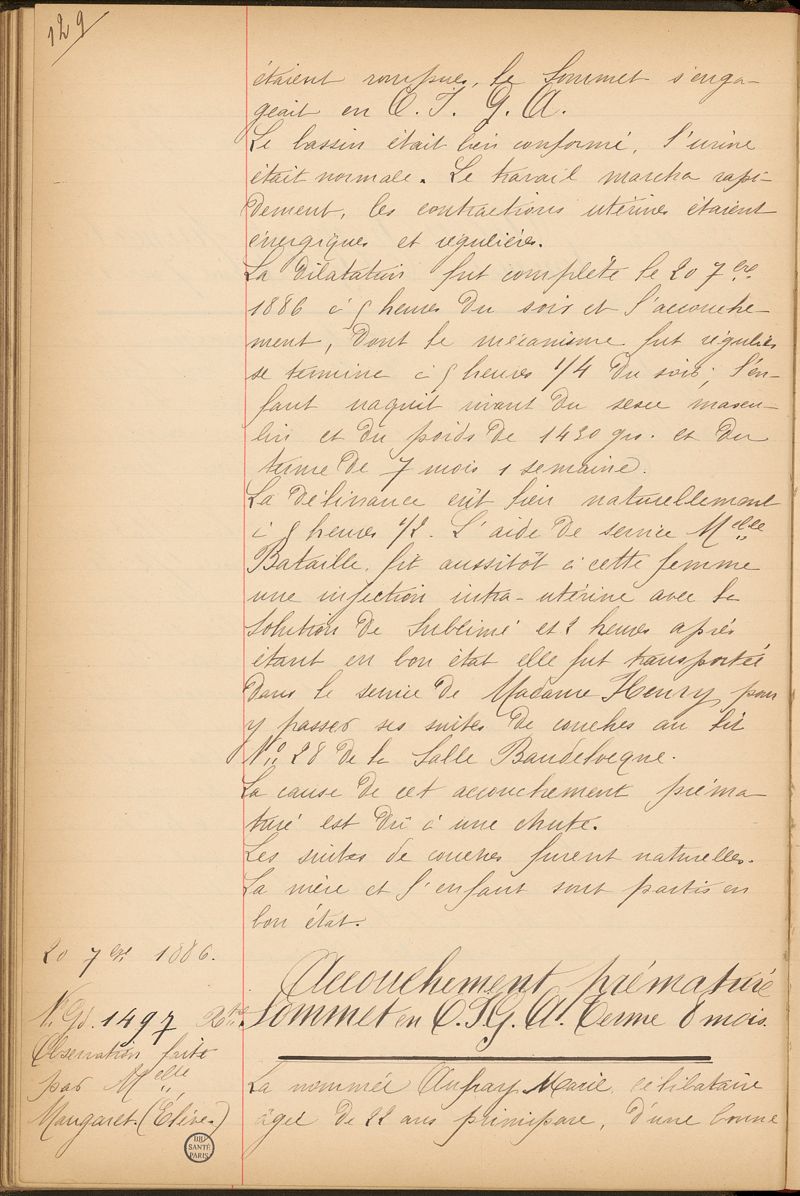 129
étaient rompues, le Sommet s'enga-
geait en O. I. G. A.
Le bassin était bien conformé, l'urine
était normale. Le travail marcha rapi-
dement, les contractions utérines étaient
énergiques et régulières.
La dilatation fut complète le 20 7bre
1886 à 9 heures du soir et l'accouche-
ment, dont le mécanisme fut régulier
se termine à 9 heures 1/4 du soir; l'en-
fant naquit vivant du sexe mascu-
lin et du poids de 1430 grs. et du
terme de 7 mois 1 semaine.
La délivrance eût lieu naturellement
à 9 heures 1/2. L'aide de service Melle
Bataille, fit aussitôt à cette femme
une injection intra-utérine avec la
Solution de Sublimé et 2 heures après
étant en bon état elle fut transportée
dans le service de Madame Henry, pour
y passer ses suites de couches au lit
No 28 de la Salle Baudelocque.
La cause de cet accouchement préma-
turé est dû à une chute.
Les suites de couches furent naturelles.
La mère et l'enfant sont partis en
bon état.
20 7bre 1886.
No Gd. 1497
Observation faite
par Melle
Mangaret. (Elève.)
Accouchement prématuré
Sommet en O. I. G. A. Terme 8 mois.
La nommée Aufray Marie, célibataire
âgée de 22 ans primipare, d'une bonne
BIU
SANTÉ
PARIS